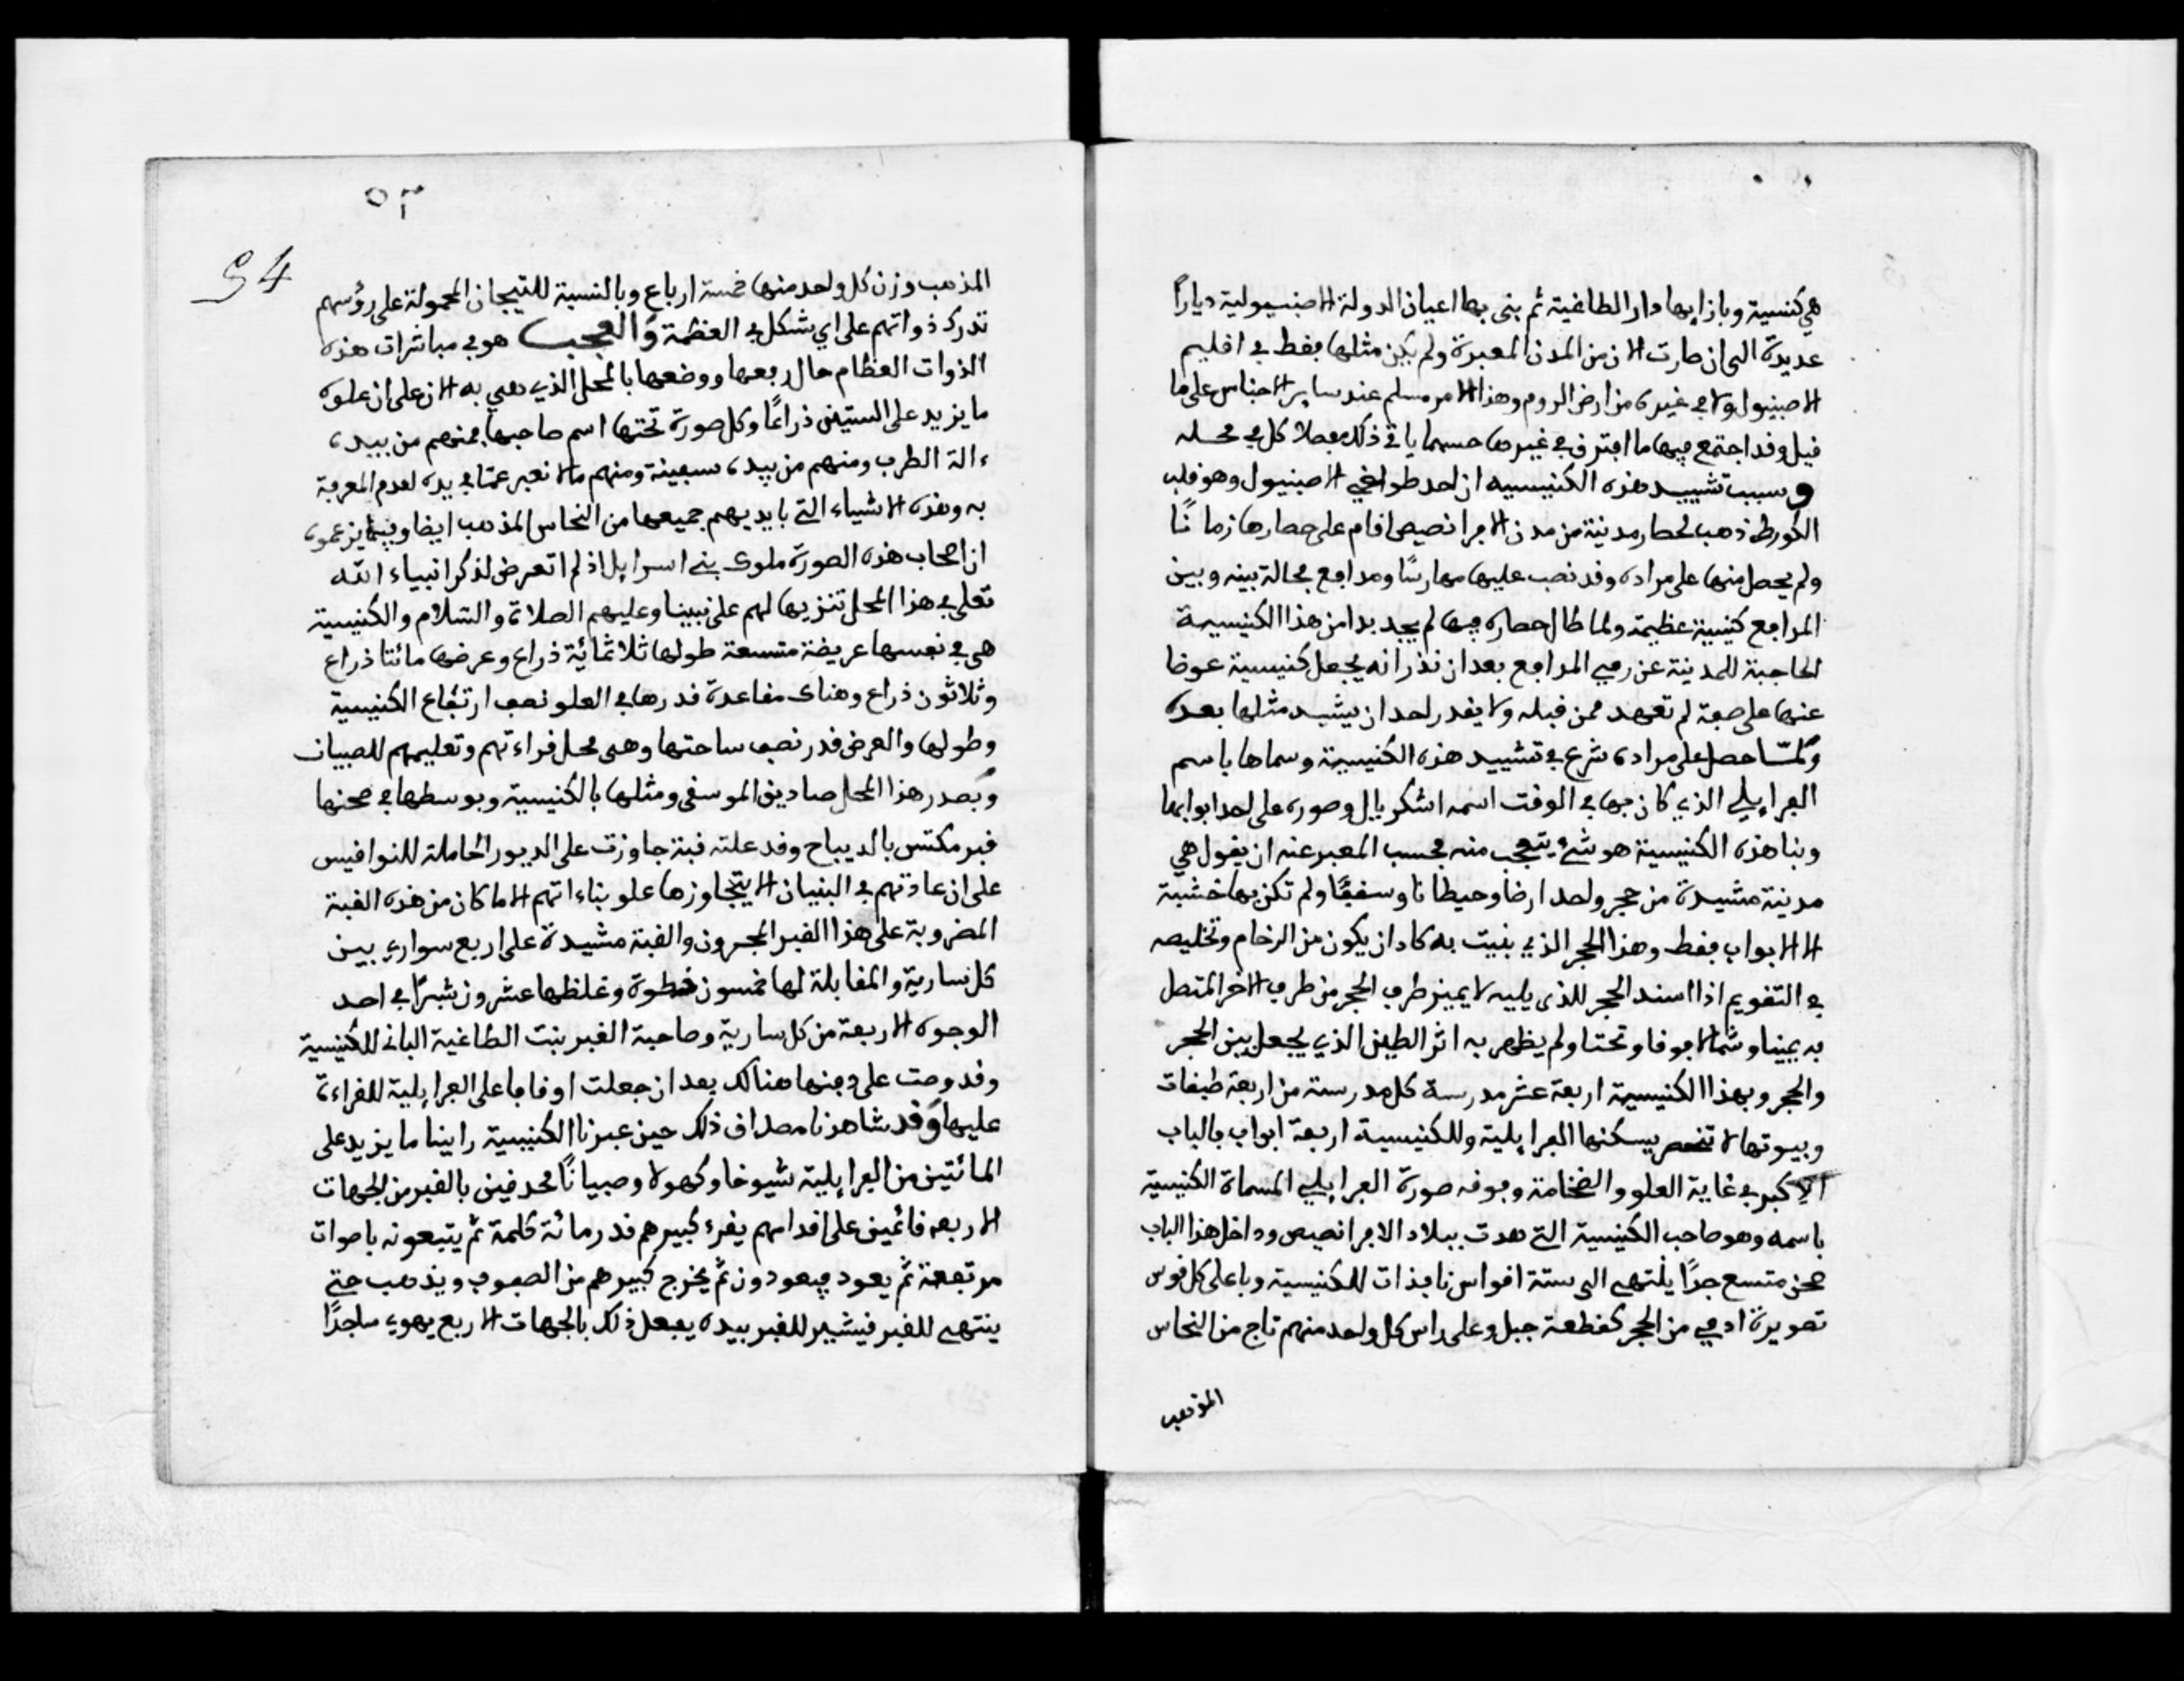 هي كنسية وبازايها دار الطاغية ثم بنى بها اعيان الدولة الاصنبيولية ديارًا
عديدة الى ان صارت الان من المدن المعبرة ولم يكن مثلها بفط في افليم
الاصبنيول ولا في غيره من ارض الروم وهذا الامر مسلم عند ساير الاجناس على ما
فيل وفد اجتمع فيها ما افترق في غيرها حسبما ياتي ذلك مفصلا كل في محله
وسبب تشييد هذه الكنيسيه ان احد طواغي الاصبنيول وهو فلب
الكورط ذهب لحصار مدينة من مدن الافرانصيص افام على حصارها زمانًا
ولم يحصل منها على مراده وفد نصب عليها مهارسًا ومدافع فحالة بينه وبين
المدافع كنيسية عظيمة ولما طال حصاره فيها لم يجد بدا من هذا الكنيسية
الحاجبة للمدينة عن رمي المدافع بعد ان نذر انه يجعل كنيسية عوضا
عنها على صفة لم تعهد ممن فبله ولا يفدر احد ان يشيد مثلها بعده
ولمّا حصل على مراده شرع في تشييد هذه الكنيسية وسماها باسم
الفرايلي الذي كان بها في الوفت اسمه اشكريال وصوره على احد ابوابها
وبنا هذه الكنيسية هو شيء يتعجب منه فحسب المعبر عنه ان يفول هي
مدينة مشيدة من حجر واحد ارضا وحيطانا وسففًا ولم تكن بها خشبة
الا الابواب فقط وهذا الحجر الذي بنيت به كاد ان يكون من الرخام وتخليصه
في التفويم اذا اسند الحجر للذي يليه لا يميز طرف الحجر من طرف الاخر المتصل
به يمينا وشمالا وفوفا وتحتا ولم يظهر به اثر الطين الذي يجعل بين الحجر
والحجر وبهذا الكنيسية اربعة عشر مدرسة كل مدرسة من اربعة طبفات
وبيوتها لا تنحصر يسكنها الفرايلية وللكنيسية اربعة ابواب فالباب
الاكبر في غاية العلو والضخامة وفوفه صورة الفرايلي المسماة الكنيسية
باسمه وهو صاحب الكنيسية التي هدت ببلاد الافرانصيص وداخل هذا الباب
صحن متسع جدًا ينتهي الى ستة افواس نافذات للكنيسية وباعلى كل فوس
تصويرة ادمي من الحجر كفطعة جبل وعلى راس كل واحد منهم تاج من النحاس
المذهب
٥٣
54
المذهب وزن كل واحد منها خمسة ارباع وبالنسبة للتيجان المحمولة على رؤسهم
تدرك ذواتهم على اي شكل في العظمة والعجب هو في مباشرات هذه
الذوات العظام حال رفعها ووضعها بالمحل الذي هي به الان على ان علوه
ما يزيد على الستين ذراعًا وكل صورة تحتها اسم صاحبها فمنهم من بيده
ءالة الطرب ومنهم من بيده سفينة ومنهم ما لا نعبر عمّا في يده لعدم المعرفة
به وهذه الاشياء التي بايديهم جميعها من النحاس المذهب ايضا وفيما يزعموه
ان اصحاب هذه الصورة ملوك بني اسرايل اذ لم اتعرض لذكر انبياء الله
تعلى في هذا المحل تنزيها لهم على نبينا وعليهم الصلاة والسّلام والكنيسية
هي في نفسها عريضة متسعة طولها ثلاثمائة ذراع وعرضها مائتا ذراع
وثلاثون ذراع وهناك مفاعدة فدرها في العلو نصف ارتفاع الكنيسية
وطولها والعرض فدر نصف ساحتها وهي محل فراءتهم وتعليمهم للصبيان
وبصدر هذا المحل صاديق الموسفى ومثلها بالكنيسية وبوسطها في صحنها
فبر مكتس بالديباج وفد علته فبة جاوزت على الديور الحاملة للنوافيس
على ان عادتهم في البنيان لا يتجاوزها علو بناءاتهم الا ما كان من هذه الفبة
المضروبة على هذا الفبر المجرون والفبة مشيدة على اربع سواري بين
كل سارية والمفابلة لها خمسون خطوة وغلظها عشرون شبرًا في احد
الوجوه الاربعة من كل سارية وصاحبة الفبر بنت الطاغية الباني للكنيسية
وفد وصت على دفنها هنالك بعد ان جعلت اوفافا على الفرايلية للفراءة
عليها وفد شاهدنا مصداف ذلك حين عبرنا الكنيسية راينا ما يزيد على
المائتين من الفرايلية شيوخا وكهولا وصبيانًا محدفين بالفبر من الجهات
الاربعه فائمين على افدامهم يفرء كبيرهم فدر مائة كلمة ثم يتبعونه باصوات
مرتفعة ثم يعود فيعودون ثم يخرج كبيرهم من الصفوف ويذهب حتى
ينتهي للفبر فيشير للفبر بيده يفعل ذلك بالجهات الاربع يهوي ساجدًا